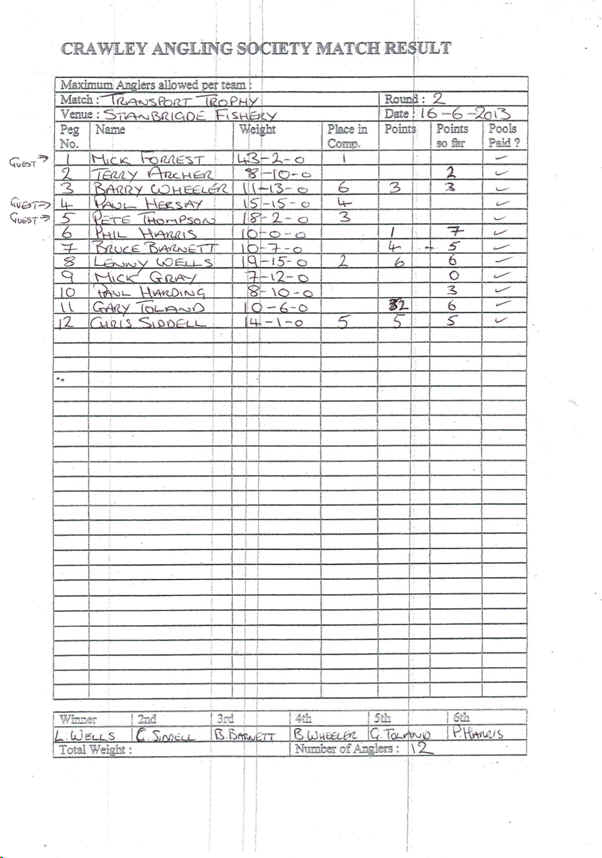 CRAWLEY ANGLING SOCIETY MATCH RESULT
Maximum Anglers allowed per team :
Match : TRANSPORT TROPHY Round : 2
Venue : STANBRIGDE FISHERY Date : 16-6-2013
Peg No. Name Weight Place in Comp. Points Points so far Pools Paid ?
GUEST → 1 MICK FORREST 43-2-0 1 ✓
2 TERRY ARCHER 8-10-0 2 ✓
3 BARRY WHEELER 11-13-0 6 3 3 ✓
GUEST → 4 PAUL HERSAY 15-15-0 4 ✓
GUEST → 5 PETE THOMPSON 18-2-0 3 ✓
6 PHIL HARRIS 10-0-0 1 7 ✓
7 BRUCE BARNETT 10-7-0 4 5 ✓
8 LENNY WELLS 19-15-0 2 6 6 ✓
9 MICK GRAY 7-12-0 0 ✓
10 PAUL HARDING 8-10-0 3 ✓
11 GARY TOLAND 10-6-0 2 6 ✓
12 CHRIS SIDDELL 14-1-0 5 5 5 ✓
Winner 2nd 3rd 4th 5th 6th
L. WELLS C. SIDDELL B. BARNETT B. WHEELER G. TOLAND P. HARRIS
Total Weight : Number of Anglers : 12